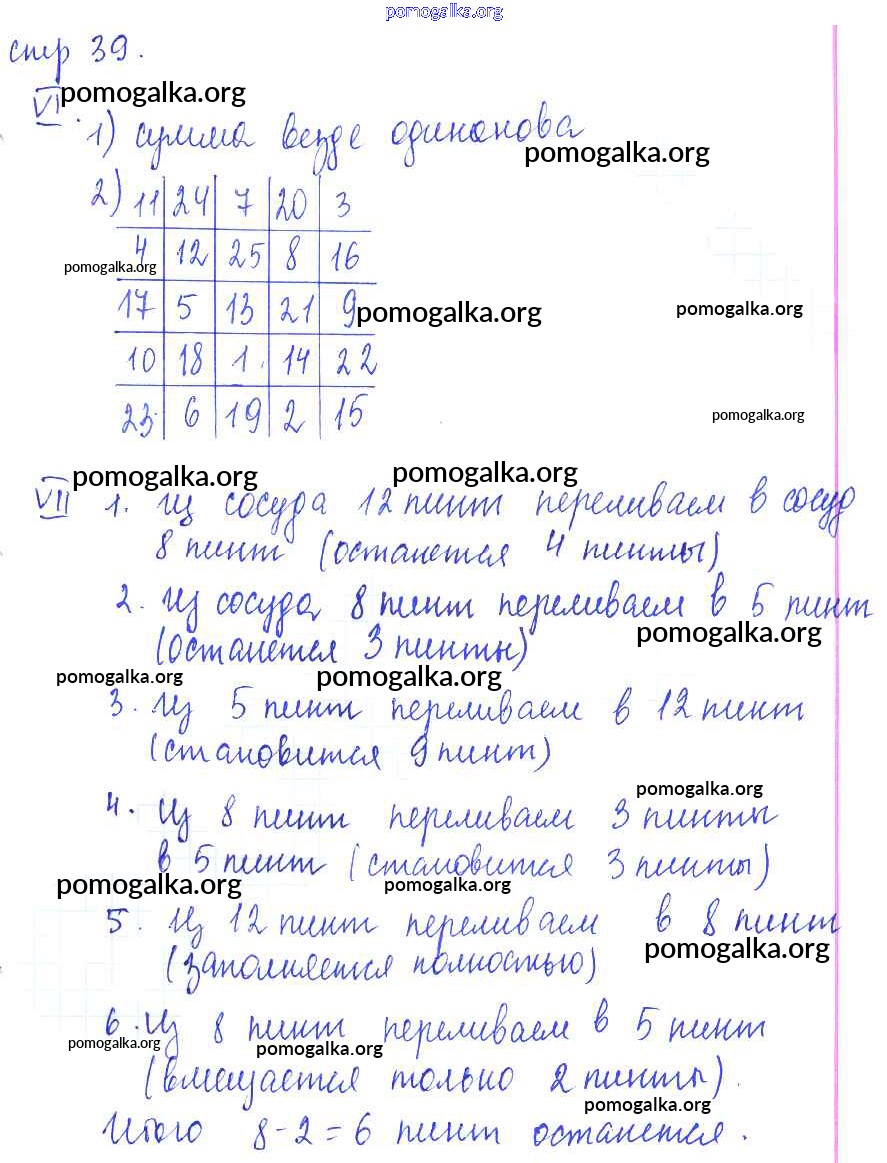 pomogalka.org
стр 39.
VI pomogalka.org
1) сумма везде одинакова
pomogalka.org
2) 11 24 7 20 3
4 12 25 8 16
pomogalka.org
17 5 13 21 9 pomogalka.org pomogalka.org
10 18 1 14 22
23 6 19 2 15 pomogalka.org
pomogalka.org pomogalka.org
VII 1. Из сосуда 12 пинт переливаем в сосуд
8 пинт (останется 4 пинты)
2. Из сосуда 8 пинт переливаем в 5 пинт
(останется 3 пинты) pomogalka.org
pomogalka.org pomogalka.org
3. Из 5 пинт переливаем в 12 пинт
(становится 9 пинт)
pomogalka.org
4. Из 8 пинт переливаем 3 пинты
в 5 пинт (становится 3 пинты)
pomogalka.org pomogalka.org
5. Из 12 пинт переливаем в 8 пинт
(заполняется полностью) pomogalka.org
6. Из 8 пинт переливаем в 5 пинт
pomogalka.org pomogalka.org
(вмещается только 2 пинты).
pomogalka.org
Итого 8-2=6 пинт останется.